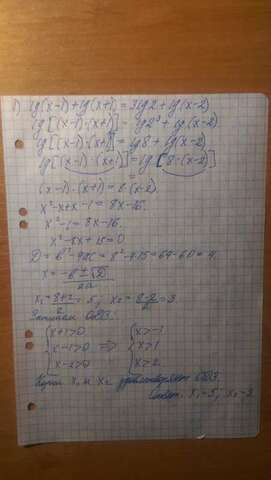 lg(x-1)+lg(x+1)=3lg2+lg(x-2)
lg[(x-1)·(x+1)]=lg2³+lg(x-2)
lg[(x-1)·(x+1)]=lg8+lg(x-2)
lg[(x-1)·(x+1)]=lg[8·(x-2)]
(x-1)·(x+1)=8(x-2)
x²-x+x-1=8x-16
x²-1=8x-16
x²-8x+15=0
D=b²-4ac=8²-4·15=64-60=4
x=(-b±√D)/2a
x₁=(8+2)/2=5; x₂=(8-2)/2=3
Запишем ОДЗ
{x+1>0 {x>-1
{x-1>0 ⇒ {x>1
{x-2>0 {x>2
Корни x₁ и x₂ удовлетворяют ОДЗ.
Ответ: x₁=5; x₂=3